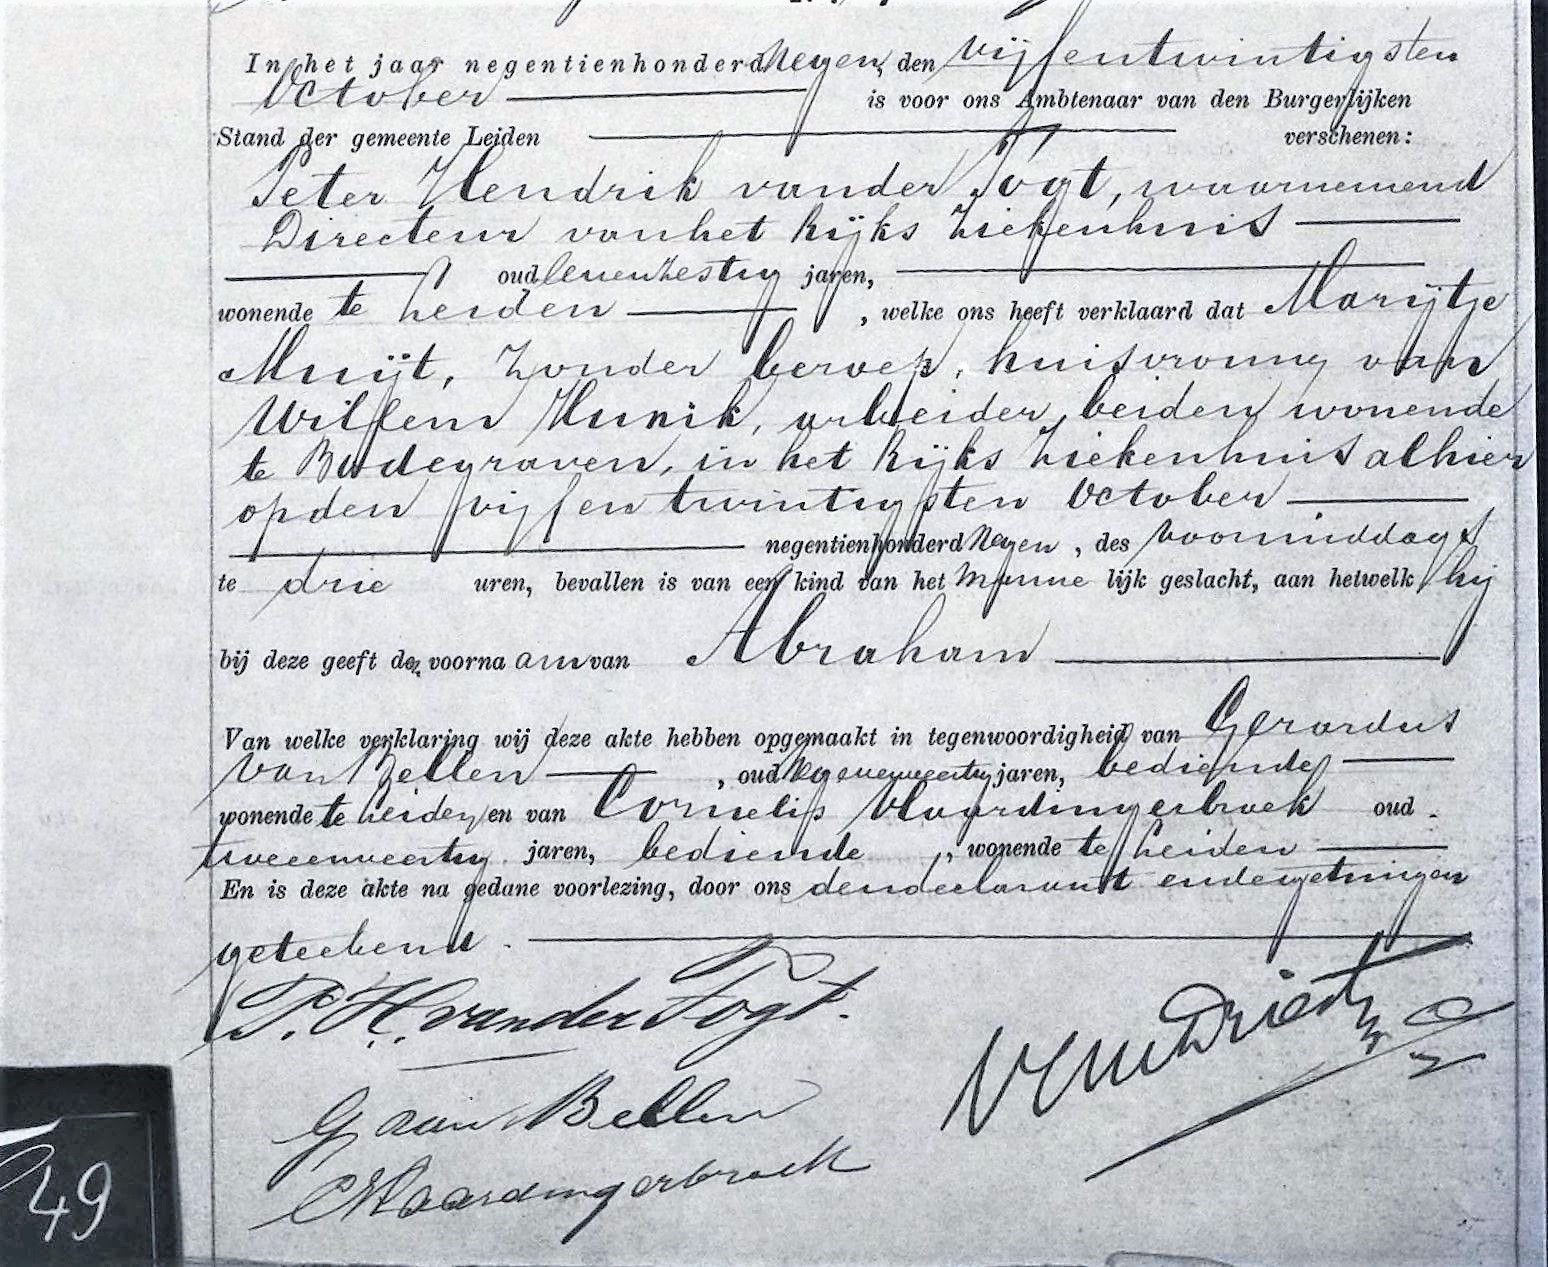 In het jaar negentienhonderd Negen, den vijfentwintigsten
October is voor ons Ambtenaar van den Burgerlijken
Stand der gemeente Leiden verschenen:
Peter Hendrik van der Togt, waarnemend
Directeur van het Rijks Ziekenhuis
oud zevenenzestig jaren,
wonende te Leiden, welke ons heeft verklaard dat Marijtje
Muijt, zonder beroep, huisvrouw van
Willem Hunik, arbeider, beiden wonende
te Bodegraven, in het Rijks Ziekenhuis alhier
op den vijfentwintigsten October
negentienhonderd Negen, des voormiddags
te drie uren, bevallen is van een kind van het mannelijk geslacht, aan hetwelk hij
bij deze geeft den voornaam van Abraham
Van welke verklaring wij deze akte hebben opgemaakt in tegenwoordigheid van Gerardus
van Bellen, oud negenenveertig jaren, bediende
wonende te Leiden, en van Cornelis Vlaardingerbroek oud
tweeenveertig jaren, bediende, wonende te Leiden
En is deze akte na gedane voorlezing, door ons den declarant en de getuigen
geteekend.
P. H. van der Togt.
G van Bellen
CVlaardingerbroek
49